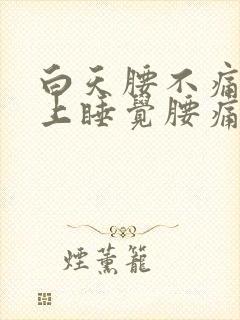 白天腰不痛
上睡覺腰痛
煙薰籠